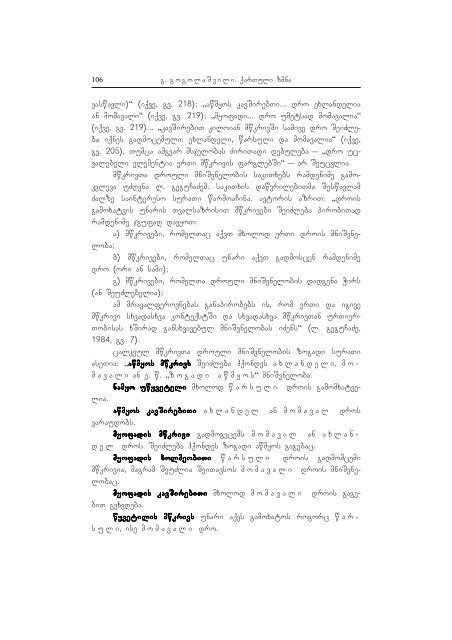 106 გ. გოგოლაშვილი. ქართული ზმნა
ვასწავლი)“ (იქვე, გვ. 218); „აწმყოს კავშირებითი... დრო ეხლანდელია
ან მომავალი“ (იქვე, გვ. 219); „მყოფადი... დრო უმეტსად მომავალია“
(იქვე, გვ. 219)... „კავშირებით კილოიან მწკრივში სამივე დრო შეიძლე-
ბა იქნეს გადმოცემული: ეხლანდელი, წარსული და მომავალია“ (იქვე,
გვ. 205), თუმცა ამგვარ მსჯელობას ძირითადი დებულება — „დრო უც-
ვალებელი ელემენტია ერთი მწკრივის ფარგლებში“ — არ შეუცვლია.
მწკრივთა დროული მნიშვნელობის საკითხებს რამდენიმე გამო-
კვლევა უძღვნა ლ. გეგუჩაძემ. საკითხის დაწვრილებითმა შესწავლამ
ძალზე საინტერესო სურათი წარმოაჩინა. ავტორის აზრით: „დროის
გამოხატვის უნარის თვალსაზრისით მწკრივები შეიძლება პირობითად
რამდენიმე ჯგუფად დავყოთ:
ა) მწკრივები, რომელთაც აქვთ მხოლოდ ერთი დროის მნიშვნე-
ლობა;
ბ) მწკრივები, რომელთაც უნარი აქვთ გადმოსცენ რამდენიმე
დრო (ორი ან სამი);
გ) მწკრივები, რომელთა დროული მნიშვნელობის დადგენა ჭირს
(ან შეუძლებელია);
ამ მრავალფეროვნებას განაპირობებს ის, რომ ერთი და იგივე
მწკრივი სხვადასხვა კონტექსტში და სხვადასხვა მწკრივთან ურთიერ-
თობისას ხშირად განსხვავებულ მნიშვნელობას იძენს“ (ლ. გეგუჩაძე,
1984, გვ. 7).
ცალკეულ მწკრივთა დროული მნიშვნელობის ზოგადი სურათი
ასეთია: „აწმყოს მწკრივს შეიძლება ჰქონდეს ახლანდელი, მო-
მავალი ან ე. წ. „ზოგადი აწმყოს“ მნიშვნელობა.
ნამყო უწყვეტელი მხოლოდ წარსული დროის გამომხატვე-
ლია.
აწმყოს კავშირებითი ახლანდელ ან მომავალ დროს
ვარაუდობს.
მყოფადის მწკრივი გადმოგვცემს მომავალ ან ახლან-
დელ დროს. შეიძლება ჰქონდეს ზოგადი აწმყოს გაგებაც.
მყოფადის ხოლმეობითი წარსული დროის გადმომცემი
მწკრივია, მაგრამ შეუძლია შეითავსოს მომავალი დროის მნიშვნე-
ლობაც.
მყოფადის კავშირებითი მხოლოდ მომავალი დროის გაგე-
ბით გვხვდება.
წყვეტილის მწკრივს უნარი აქვს გამოხატოს როგორც წარ-
სული, ისე მომავალი დრო.